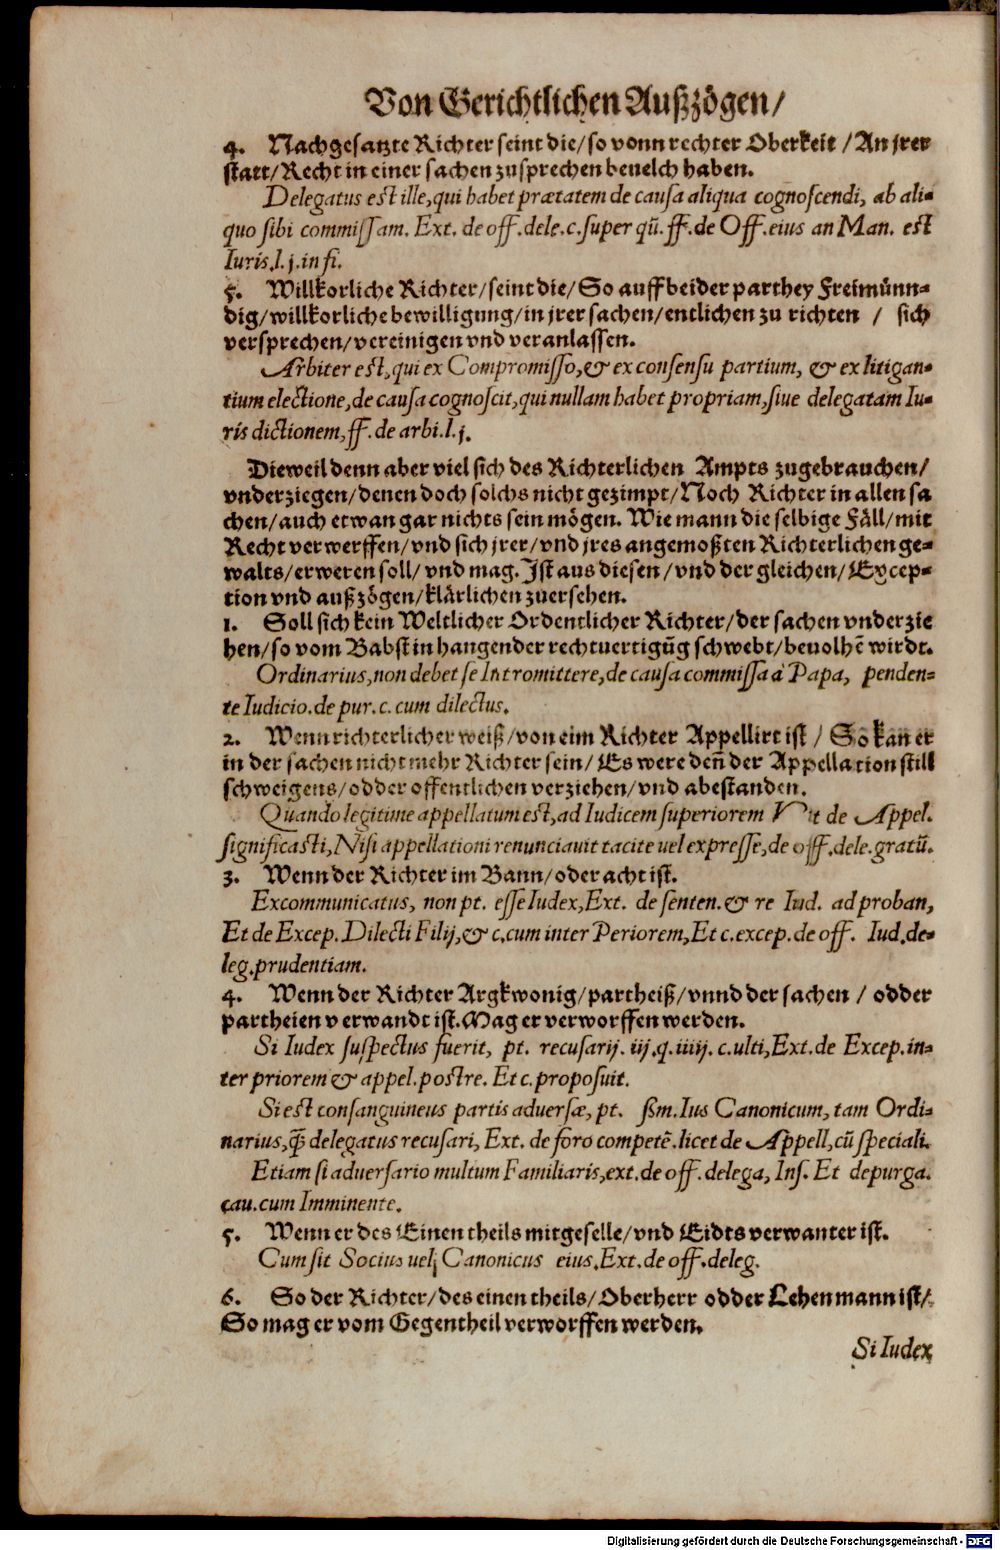 Von Gerichtlichen Außzögen/
4. Nachgesatzte Richter seint die/ so vonn rechter Oberkeit / An jrer
statt/ Recht in einer sachen zusprechen beuelch haben.
Delegatus est ille, qui habet prætatem de causa aliqua cognoscendi, ab ali-
quo sibi commissam. Ext. de off. dele. c. super qū. ff. de Off. eius an Man. est
Iuris. l. j. in fi.
5. Willkorliche Richter/ seint die/ So auff beider parthey Freimünn-
dig/ willkorliche bewilligung/ in jrer sachen/ entlichen zu richten / sich
versprechen/ vereinigen vnd veranlassen.
Arbiter est, qui ex Compromisso, & ex consensu partium, & ex litigan-
tium electione, de causa cognoscit, qui nullam habet propriam, siue delegatam Iu-
ris dictionem, ff. de arbi. l. j.
Dieweil denn aber viel sich des Richterlichen Ampts zugebrauchen/
vnderziegen/ denen doch solchs nicht gezimpt/ Noch Richter in allen sa
chen/ auch etwan gar nichts sein mögen. Wie mann die selbige Fäll/ mit
Recht verwerffen/ vnd sich jrer/ vnd jres angemoßten Richterlichen ge-
walts/ erweren soll/ vnd mag. Ist aus diesen/ vnd der gleichen/ Excep-
tion vnd außzögen/ klärlichen zuersehen.
1. Soll sich kein Weltlicher Ordentlicher Richter/ der sachen vnderzie
hen/ so vom Babst in hangender rechtuertigūg schwebt/ beuolhē wirdt.
Ordinarius, non debet se Intromittere, de causa commissa à Papa, penden-
te Iudicio. de pur. c. cum dilectus.
2. Wenn richterlicher weiß/ von eim Richter Appellirt ist / So kan er
in der sachen nicht mehr Richter sein/ Es were deñ der Appellation still
schweigens/ odder offentlichen verziehen/ vnd abestanden.
Quando legitime appellatum est, ad Iudicem superiorem de Appel.
significasti, Nisi appellationi renunciauit tacite uel expresse, de off. dele. gratū.
3. Wenn der Richter im Bann/ oder acht ist.
Excommunicatus, non pt. esse Iudex, Ext. de senten. & re Iud. ad proban,
Et de Excep. Dilecti Filij, & c. cum inter Periorem, Et c. excep. de off. Iud. de-
leg. prudentiam.
4. Wenn der Richter Argkwonig/ partheiß/ vnnd der sachen / odder
partheien verwandt ist. Mag er verworffen werden.
Si Iudex suspectus fuerit, pt. recusarij. iij. q. iiij. c. ulti, Ext. de Excep. in-
ter priorem & appel. postre. Et c. proposuit.
Si est consanguineus partis aduersæ, pt. ßm. Ius Canonicum, tam Ordi-
narius, q̃ delegatus recusari, Ext. de foro competẽ. licet de Appell, cū speciali.
Etiam si aduersario multum Familiaris, ext. de off. delega, Ins. Et de purga.
cau. cum Imminente.
5. Wenn er des Einen theils mitgeselle/ vnd Eidts verwanter ist.
Cum sit Socius uel Canonicus eius. Ext. de off. deleg.
6. So der Richter/ des einen theils/ Oberherr odder Lehenmann ist/
So mag er vom Gegentheil verworffen werden.
Si Iudex
Digitalisierung gefördert durch die Deutsche Forschungsgemeinschaft - DFG